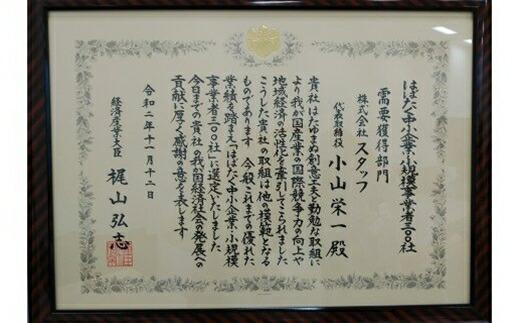 はばたく中小企業・小規模事業者三〇〇社
需要獲得部門
株式会社スタッフ
代表取締役 小山栄一殿
貴社はたゆまぬ創意工夫と勤勉な取組に
より我が国産業の国際競争力の向上や
地域経済の活性化を牽引してこられました
こうした貴社の取組は他の模範となる
ものであります 今般これまでの優れた
業績を踏まえ「はばたく中小企業・小規模
事業者三〇〇社」に選定いたしました
今日までの貴社の我が国経済社会の発展への
貢献に厚く感謝の意を表します
令和二年十一月十二日
経済産業大臣 梶山弘志